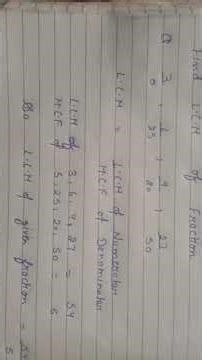 Find LCM of Fraction
Q 3/5, 6/25, 9/20, 27/50
L.C.M = L.C.M of Numerator
H.C.F of Denominator
L.C.M of 3, 6, 9, 27 = 54
H.C.F of 5, 25, 20, 50 = 5
So L.C.M of given fraction = 54/5